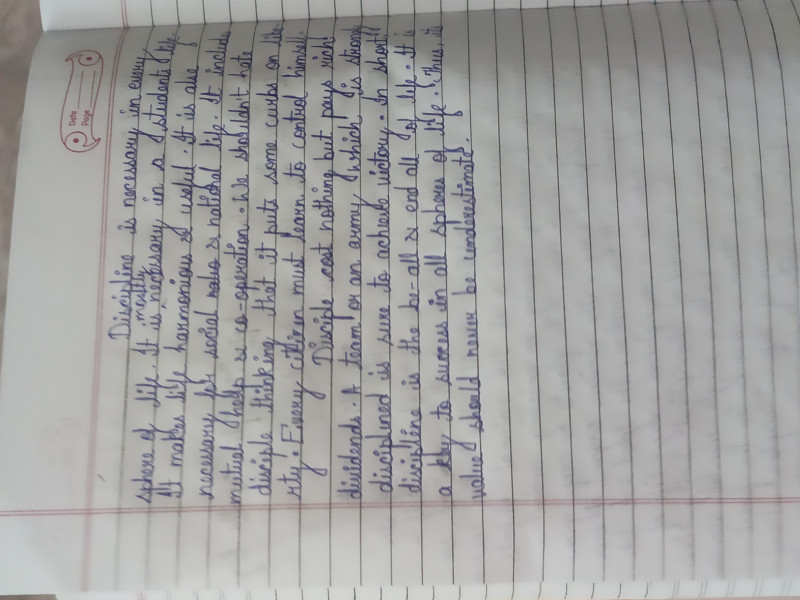 Date
Page
Discipline is necessary in every
sphere of life. It is mostly necessary in a student life.
It makes life harmonious & useful. It is also
necessary for social & national life. It includes
mutual help & co-operation. We shouldn't hate
disciple thinking that it puts some curbs on libe-
rty. Every citizen must learn to control himself.
Disciple cost nothing but pays rich
dividends. A team or an army which is strong
disciplined is sure to achieve victory. In short
discipline is the be-all & end all of life. It is
a key to success in all spheres of life. Thus, it
value should never be underestimate.